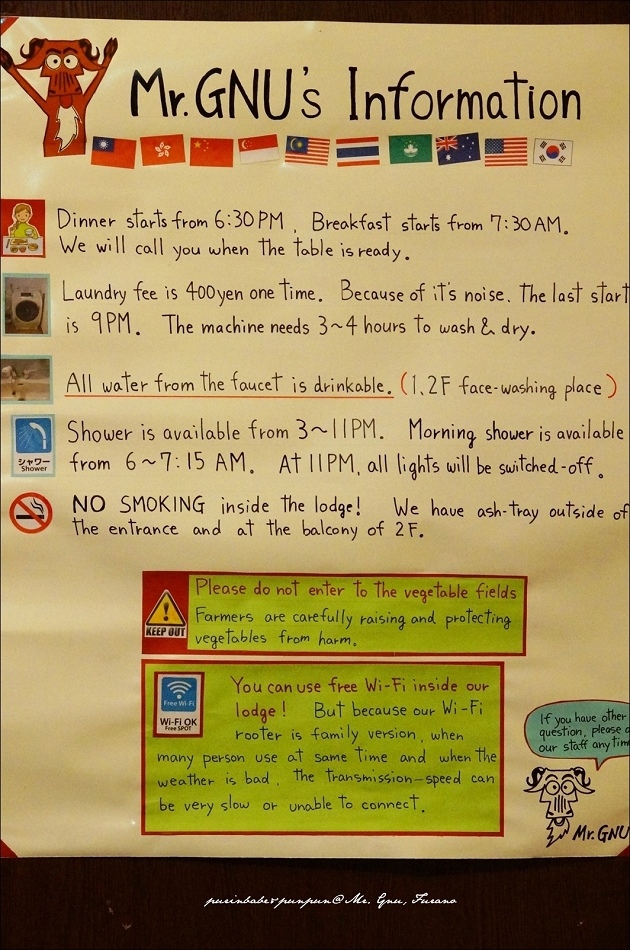 Mr. GNU's Information
Dinner starts from 6:30 PM, Breakfast starts from 7:30 AM.
We will call you when the table is ready.
Laundry fee is 400yen one time. Because of it's noise. The last start
is 9PM. The machine needs 3~4 hours to wash & dry.
All water from the faucet is drinkable. (1.2F face-washing place)
Shower is available from 3~11PM. Morning shower is available
シャワー
Shower
from 6~7:15 AM. At 11PM, all lights will be switched-off.
NO SMOKING inside the lodge! We have ash-tray outside of
the entrance and at the balcony of 2F.
Please do not enter to the vegetable fields
KEEP OUT
Farmers are carefully raising and protecting
vegetables from harm.
Free Wi-Fi
Wi-Fi OK
Free SPOT
You can use free Wi-Fi inside our
lodge! But because our Wi-Fi
rooter is family version, when
many person use at same time and when the
weather is bad, the transmission-speed can
be very slow or unable to connect.
If you have other
question, please
our staff any
Mr. GNU
purinbabe&punpun@Mr. Gnu, Furano